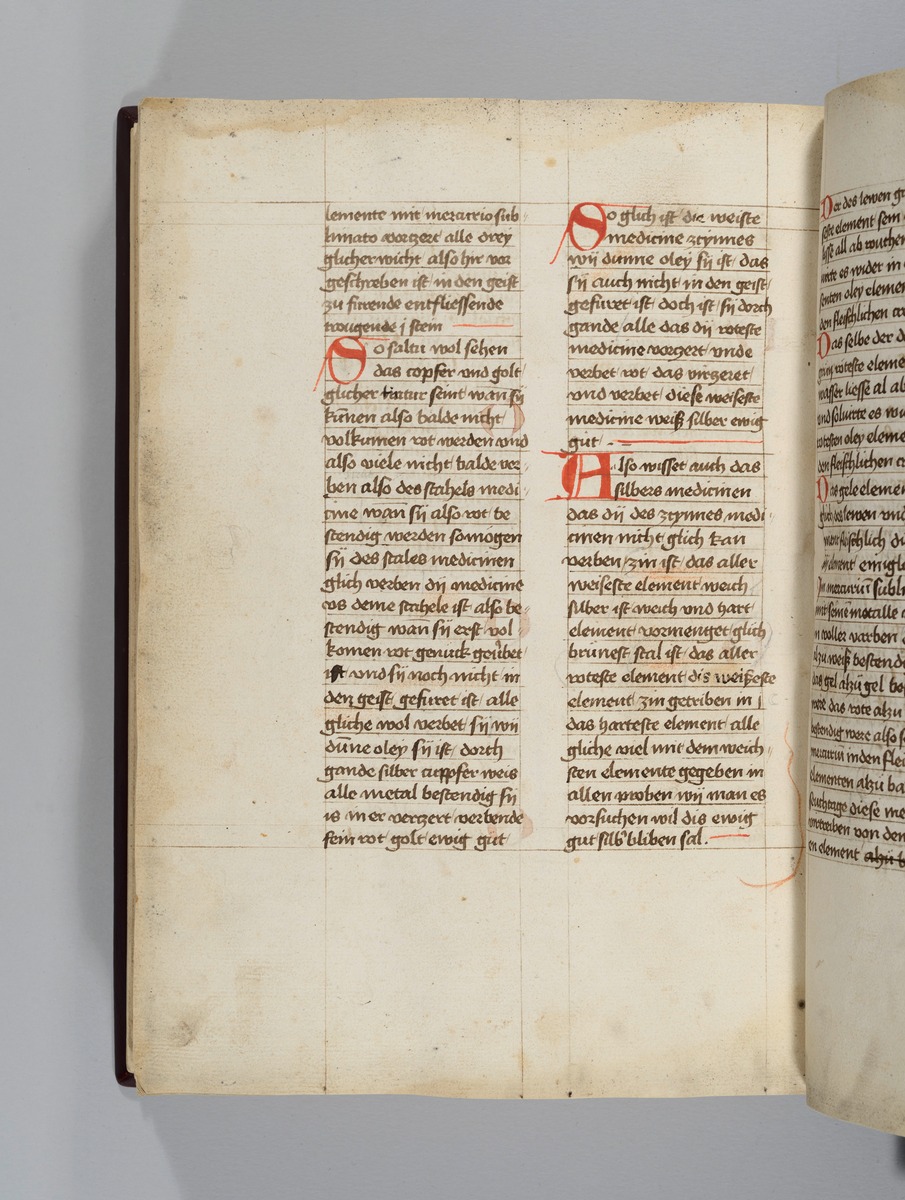 lemente mit mercurio sub-
limato vorczert alle drey
glicher wicht also hir vor
geschreben ist in den geist
zu firende entfliessende
tougende j stein
So saltu wol sehen
das copfer und golt
glicher natur seint wan sÿ
kūnen also balde nicht
volkumen rot werden und
also viele nicht balde ver-
ben also des stahels medi-
cine wan sÿ also rot be
stendig werden so mögen
sÿ des stales medicinen
glich verben dÿ medicine
us deme stahele ist also be-
stendig wan̄ sÿ erst vol-
komen rot genuck geverbet
ist vnd sÿ noch nicht in
den geist gefuret ist alle
gliche wol verbet sÿ wÿ
dūne oley sÿ ist dorch
gande silber cuppfer weis
alle metal bestendig sÿ
is in er verczert verbende
fein rot golt ewig gut
So glich ist die weiste
medicine zcÿnnes
wÿ dunne oley sÿ ist das
sÿ auch nicht in den geist
gefuret ist doch ist sÿ dorch
gande alle das dÿ roteste
medicine vorczert vnde
verbet rot das virczeret
vnd verbet diese weiseste
medicine weiß silber ewig
gut
Also wisset auch das
silbers medicinen
das dÿ des zcÿnnes medi-
cinen nicht glich kan
verben zin ist das aller
weiseste element weich
silber ist weich vnd hart
element vormenget glich
brunest stal ist das aller
roteste element dis weißeste
element zin getriben in j
das harteste element alle
gliche viel mit dem weich-
sten elemente gegeben in
allen proben wÿ man es
vorsuchen wil dis ewig
gut silb' bliben sal.
Der des lewen
seste element sein
lisse all ab
es wider in
senten oley elemen
den fleischlichen
Das selbe der
roteste eleme
wasser liesse al ab
vnd soluirte es
rotesten oley eleme
den fleischlichen
Das gele elemen
des lewen vnd
fleischlich
element ein
mercuriū subli
mit seinē metalle
in voller varben
alzu weiß bestendi
das gel alzu gel be
were das rote alzu
bestendig were also
mercuriū in den
elementen alzu ba
feuchtage diese me
vortreiben von den
en element alzu